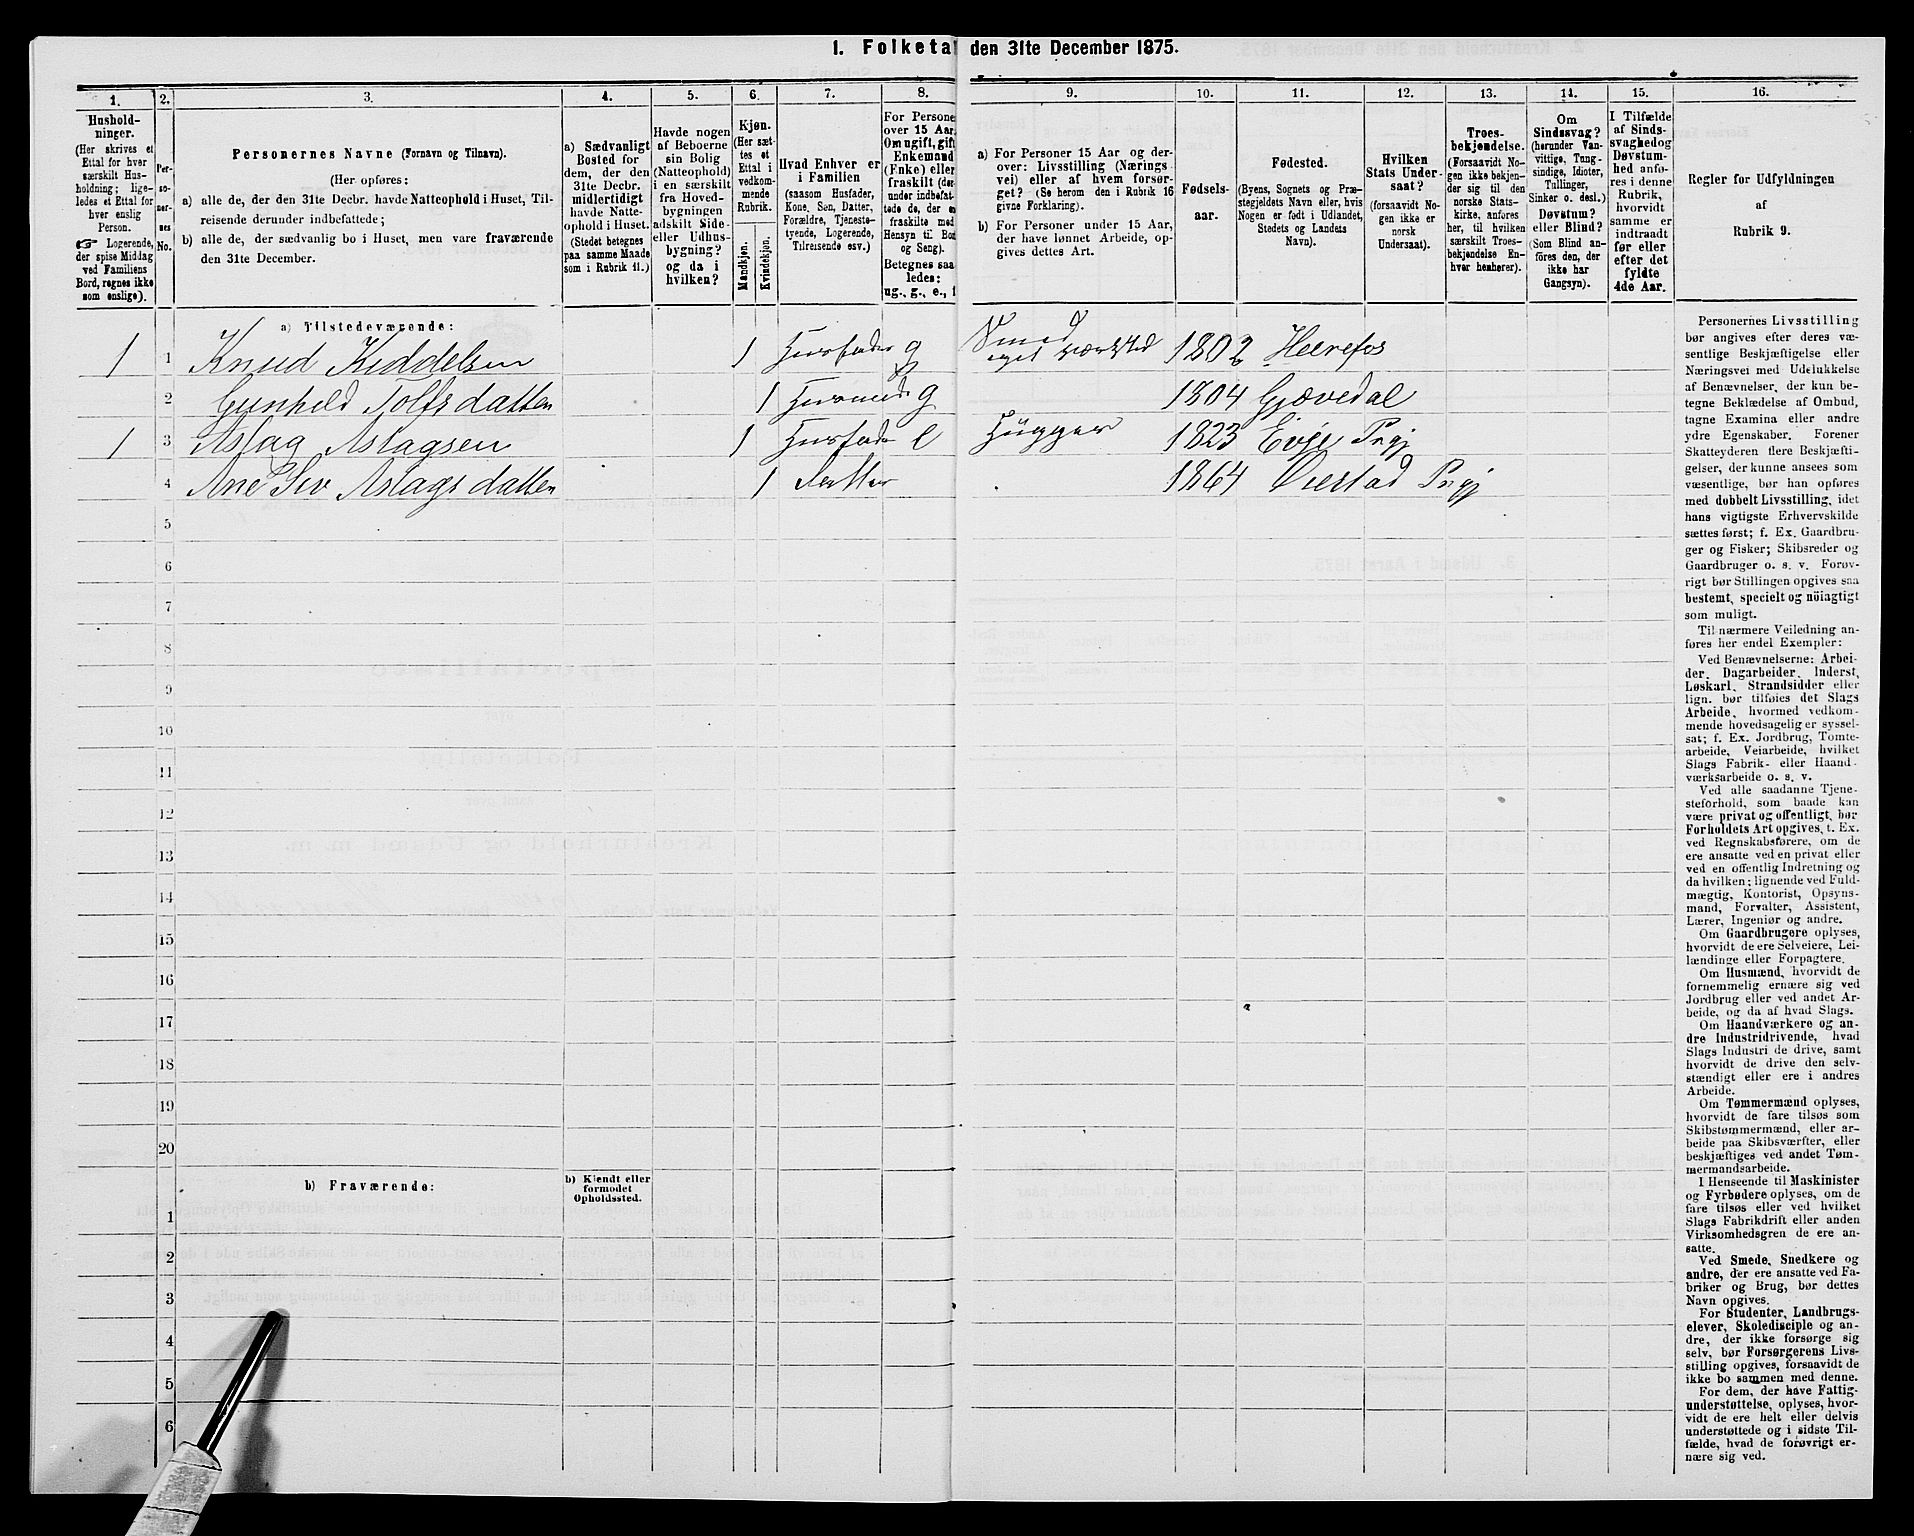 1. Folketa den 31te December 1875.
1. 2. 3. 4. 5. 6. 7. 8. 9. 10. 11. 12. 13. 14. 15. 16.
Hushold-
ninger.
(Her skrives et
Ettal for hver
særskilt Hus-
holdning; lige-
ledes et Ettal for
hver enslig
Person.
☞ Logerende,
der spise Middag
ved Familiens
Bord, regnes ikke
som enslige).
Per-
so-
ner-
nes
No.
Personernes Navne (Fornavn og Tilnavn).
(Her opføres:
a) alle de, der den 31te Decbr. havde Natteophold i Huset, Til-
reisende derunder indbefattede;
b) alle de, der sædvanlig bo i Huset, men vare fraværende
den 31te December.
a) Sædvanligt
Bosted for
dem, der den
31te Decbr.
midlertidigt
havde Natte-
ophold i Huset.
(Stedet betegnes
paa samme Maade
som i Rubrik 11.)
Havde nogen
af Beboerne
sin Bolig
(Natteophold)
i en særskilt
fra Hoved-
bygningen
adskilt Side-
eller Udhus-
bygning?
og da i
hvilken?
Kjøn.
(Her sæt-
tes et
Ettal i
vedkom-
mende
Rubrik.
Mandkjøn.
Kvindekjøn.
Hvad Enhver er
i Familien
(saasom Husfader,
Kone, Søn, Datter,
Forældre, Tjeneste-
tyende, Logerende,
Tilreisende osv.)
For Persone
over 15 Aar.
Om ugift, gift
Enkemand
(Enke) eller
fraskilt (der-
under indbefat-
tede de, der e
fraskilte med
Hensyn til Bo
og Seng).
Betegnes saa
ledes:
ug., g., e., f
a) For Personer 15 Aar og der-
over: Livsstilling (Nærings
vei) eller af hvem forsør-
get? (Se herom den i Rubrik 16
givne Forklaring).
b) For Personer under 15 Aar,
der have lønnet Arbeide, op-
gives dettes Art.
Fødsels-
aar.
Fødested.
(Byens, Sognets og Præ-
stegjeldets Navn eller, hvis
Nogen er født i Udlandet,
Stedets og Landets
Navn).
Hvilken
Stats Under-
saat?
(forsaavidt No-
gen ikke er
norsk
Undersaat).
Troes-
bekjendelse.
(Forsaavidt No-
gen ikke bekjen-
der sig til den
norske Stats-
kirke, anføres
her, til hvilken
særskilt Troes-
bekjendelse En-
hver henhører).
Om
Sindssvag?
(herunder Van-
vittige, Tung-
sindige, Idioter,
Tullinger,
Sinker o. desl.)
Døvstum?
eller Blind?
(Som Blind an-
føres den, der
ikke har
Gangsyn).
I Tilfælde
af Sinds-
svaghed og
Døvstum-
hed anfø-
res i denne
Rubrik,
hvorvidt
samme er
indtraadt
før eller
efter det
fyldte
4de Aar.
Regler for Udfyldningen
af
Rubrik 9.
a) Tilstedeværende:
1 1 Knud Keddelsen 1 Husfader g Smed eget værksted 1802 Heirefos
2 Gunhild Tolfsdatten 1 Husmoder g 1804 Gjøvedal
1 3 Aslag Aslagsen 1 Husfader e Hugger 1823 Evje Prgj
4 Ane Siv Aslagsdatten 1 Datter 1864 Øiestad Prgj
5
6
7
8
9
10
11
12
13
14
15
16
17
18
19
20
b) Fraværende:
b) Kjendt eller
formodet
Opholdssted.
1
2
3
4
5
6
Personernes Livsstilling
bør angives efter deres væ-
sentlige Beskjæftigelse eller
Næringsvei med Udelukkelse
af Benævnelser, der kun be-
tegne Beklædelse af Ombud,
tagne Examina eller andre
ydre Egenskaber. Forener
Skatteyderen flere Beskjæfti-
gelser, der kunne ansees som
væsentlige, bør han opføres
med dobbelt Livsstilling, idet
hans vigtigste Erhvervskilde
sættes først; f. Ex. Gaardbru-
ger og Fisker; Skibsreder og
Gaardbruger o. s. v. Forøv-
rigt bør Stillingen opgives saa
bestemt, specielt og nöiagtigt
som muligt.
Til nærmere Veiledning an-
føres her endel Exempler:
Ved Benævnelserne: Arbei-
der, Dagarbeider, Inderst,
Løskarl, Strandsidder eller
lign. bør tilføies det Slags
Arbeide, hvormed vedkom-
mende hovedsagelig er syssel-
sat; f. Ex. Jordbrug, Tomte-
arbeide, Veiarbeide, hvilket
Slags Fabrik- eller Haand-
værksarbeide o. s. v.
Ved alle saadanne Tjene-
steforhold, som baade kan
være privat og offentligt, bør
Forholdets Art opgives, t. Ex.
ved Regnskabsførere, om de
ere ansatte ved en privat eller
ved en offentlig Indretning og
da hvilken; lignende ved Fuld-
mægtig, Kontorist, Opsyns-
mand, Forvalter, Assistent,
Lærer, Ingeniør og andre.
Om Gaardbrugere oplyses,
hvorvidt de ere Selveiere, Lei-
lændinge eller Forpagtere.
Om Husmænd, hvorvidt de
fornemmelig ernære sig ved
Jordbrug eller ved andet Ar-
beide, og da af hvad Slags.
Om Haandværkere og an-
dre Industridrivende, hvad
Slags Industri de drive, samt
hvorvidt de drive den selv-
stændigt eller ere i andres
Arbeide.
Om Tømmermænd oplyses,
hvorvidt de fare tilsøs som
Skibstømmermænd, eller ar-
beide paa Skibsværfter, eller
beskjæftiges ved andet Tøm-
mermandsarbeide.
I Henseende til Maskinister
og Fyrbødere oplyses, om de
fare tilsøs eller ved hvilket
Slags Fabrikdrift eller anden
Virksomhedsgren de ere an-
satte.
Ved Smede, Snedkere og
andre, der ere ansatte ved Fa-
briker og Brug, bør dettes
Navn opgives.
For Studenter, Landbrugs-
elever, Skoledisciple og an-
dre, der ikke forsørge sig
selv, bør Forsørgerens Livs-
stilling opgives, forsaavidt de
ikke bo sammen med denne.
For dem, der have Fattig-
understøttelse, oplyses, hvor-
vidt de ere helt eller delvis
understøttede og i sidste Til-
fælde, hvad de forøvrigt er-
nære sig ved.